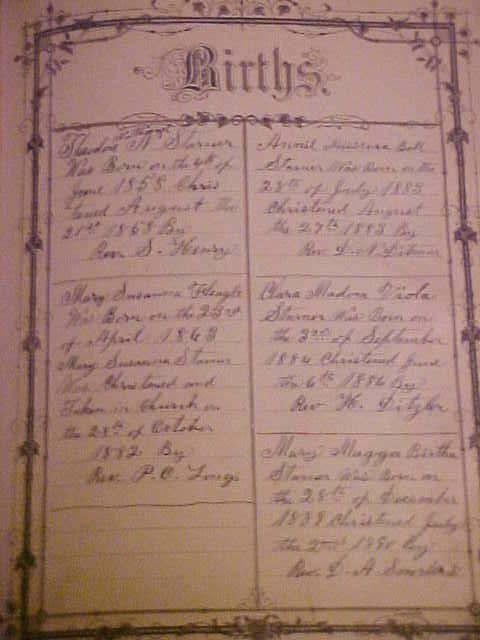 Births.
Theodore N Starner
Was Born on the 4th of
June 1858 Chris
tened August the
21st 1858 By
Rev. S. Henry
Mary Susanna Fleagle
Was Born on the 23rd
of April 1863
Mary Susanna Starner
Was Christened and
Taken in Church on
the 28th of October
1882 By
Rev. P. C. Long
Annie Bell
Starner Was Born on the
28th of July 1883
Christened August
the 27th 1883 By
Rev. D. N. Ditmar
Clara Madora Viola
Starner Was Born on
the 3rd of September
1884 Christened June
the 6th 1886 By
Rev H. Ditzler
Mary Magga Birtha
Starner Was Born on
the 28th of December
1889 Christened July
the 1890 By
Rev. D. A.